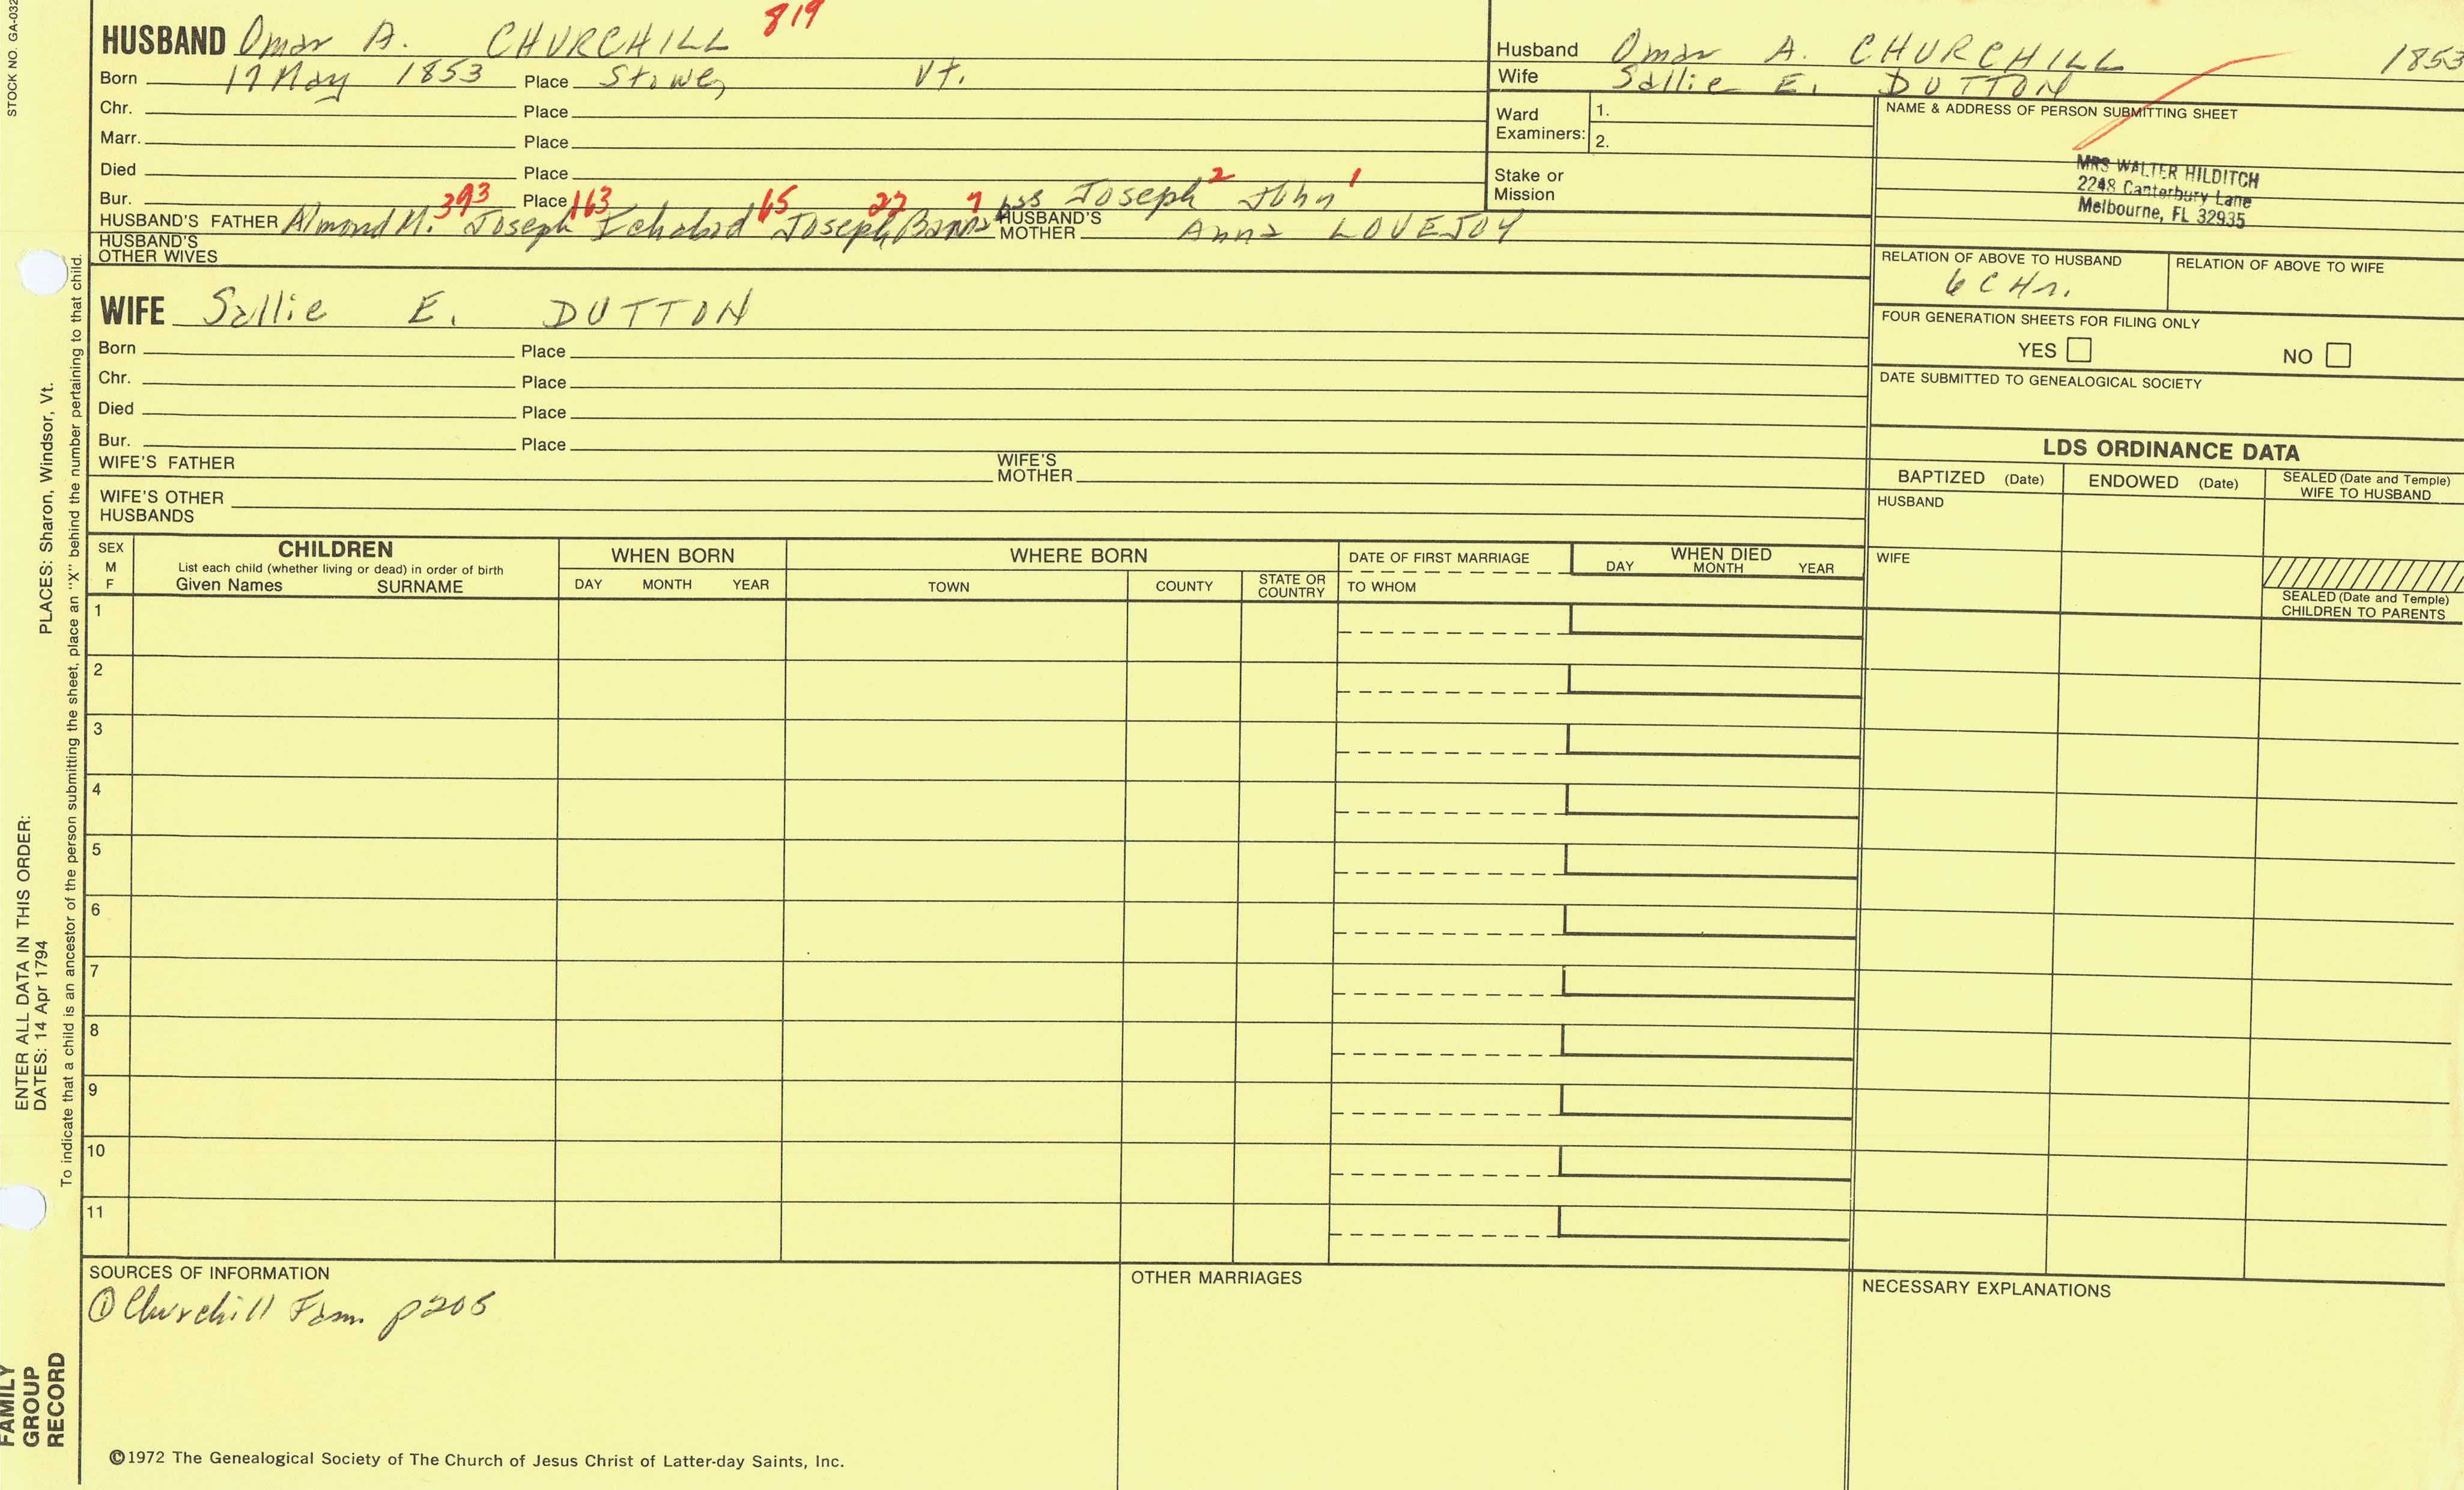 STOCK NO. GA-032
HUSBAND Omar A. CHURCHILL 819
Born 17 May 1853 Place Stowe, Vt.
Chr. Place
Marr. Place
Died Place
Bur. Place
HUSBAND'S FATHER Almond M. 393 Joseph 163 Ichabod 65 Joseph 22 Barnabas 7 Joseph 2 John 1 HUSBAND'S MOTHER Anna LOVEJOY
HUSBAND'S OTHER WIVES
WIFE Sallie E. DUTTON
Born Place
Chr. Place
Died Place
Bur. Place
WIFE'S FATHER WIFE'S MOTHER
WIFE'S OTHER HUSBANDS
Husband Omar A. CHURCHILL 1853
Wife Sallie E. DUTTON
Ward Examiners: 1.
2.
Stake or Mission
NAME & ADDRESS OF PERSON SUBMITTING SHEET
MRS WALTER HILDITCH
2248 Canterbury Lane
Melbourne, FL 32935
RELATION OF ABOVE TO HUSBAND RELATION OF ABOVE TO WIFE
FOUR GENERATION SHEETS FOR FILING ONLY
YES NO
DATE SUBMITTED TO GENEALOGICAL SOCIETY
LDS ORDINANCE DATA
BAPTIZED (Date) ENDOWED (Date) SEALED (Date and Temple) WIFE TO HUSBAND
HUSBAND
WIFE
SEALED (Date and Temple) CHILDREN TO PARENTS
SEX M F
CHILDREN
List each child (whether living or dead) in order of birth
Given Names SURNAME
WHEN BORN
DAY MONTH YEAR
WHERE BORN
TOWN COUNTY STATE OR COUNTRY
DATE OF FIRST MARRIAGE
TO WHOM
WHEN DIED
DAY MONTH YEAR
1
2
3
4
5
6
7
8
9
10
11
SOURCES OF INFORMATION
① Churchill Fam. p205
OTHER MARRIAGES
NECESSARY EXPLANATIONS
©1972 The Genealogical Society of The Church of Jesus Christ of Latter-day Saints, Inc.
ENTER ALL DATA IN THIS ORDER:
DATES: 14 Apr 1794 PLACES: Sharon, Windsor, Vt.
To indicate that a child is an ancestor of the person submitting the sheet, place an "X" behind the number pertaining to that child.
FAMILY
GROUP
RECORD